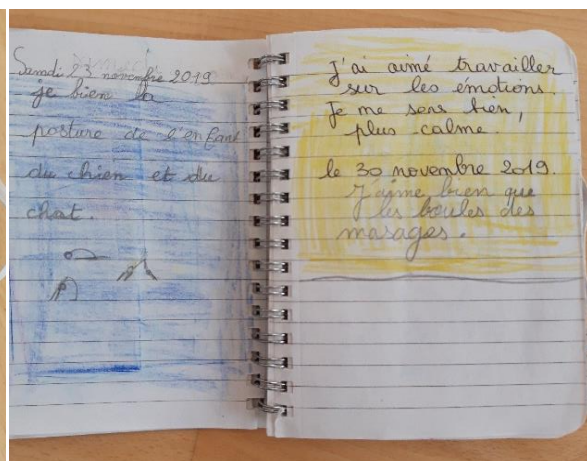 Samdi 23 novembre 2019.
je bien la
posture de l'enfant
du chien et du
chat.
J'ai aimé travailler
sur les émotions.
Je me sens bien,
plus calme.
le 30 novembre 2019.
J'aime bien que
les boules des
masages.